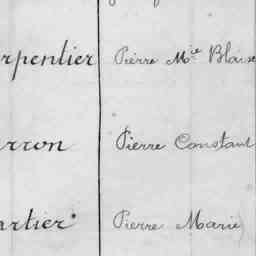 rpentier Pierre Mie Blaise
rron Pierre Constant
artier Pierre Marie